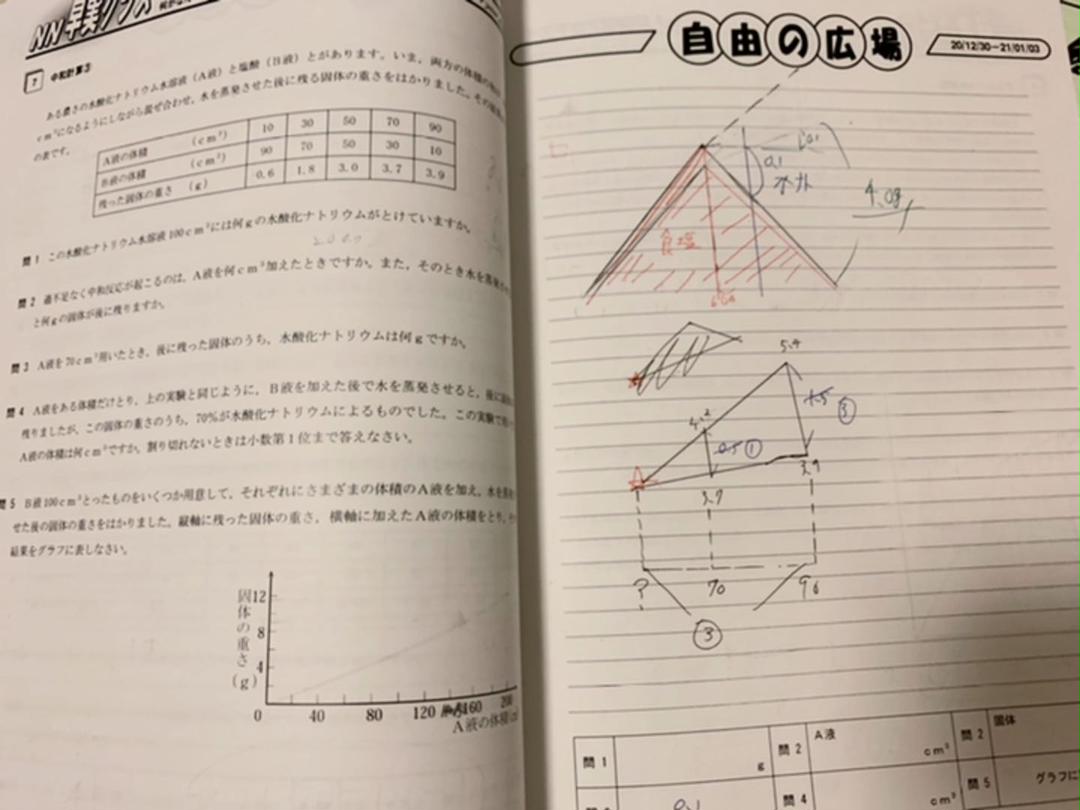 NN 早実クラス
7 中和計算③
ある濃さの水酸化ナトリウム水溶液（A液）と塩酸（B液）とがあります。いま，両方の体積の
cm³になるようにしながら混ぜ合わせ，水を蒸発させた後に残る固体の重さをはかりました。
の表です。
A液の体積 （cm³） 10 30 50 70 90
B液の体積 （cm³） 90 70 50 30 10
残った固体の重さ （g） 0.6 1.8 3.0 3.7 3.9
問1 この水酸化ナトリウム水溶液100cm³には何gの水酸化ナトリウムがとけていますか。
問2 過不足なく中和反応が起こるのは，A液を何cm³加えたときですか。また，そのとき水を蒸発
と何gの固体が後に残りますか。
問3 A液を70cm³用いたとき，後に残った固体のうち，水酸化ナトリウムは何gですか。
問4 A液をある体積だけとり，上の実験と同じように，B液を加えた後で水を蒸発させると，後に
残りましたが，この固体の重さのうち，70%が水酸化ナトリウムによるものでした。この実験で
A液の体積は何cm³ですか。割り切れないときは小数第1位まで答えなさい。
問5 B液100cm³とったものをいくつか用意して，それぞれにさまざまの体積のA液を加え，水を蒸
せた後の固体の重さをはかりました。縦軸に残った固体の重さ，横軸に加えたA液の体積をとり，
結果をグラフに表しなさい。
固体の重さ（g）
12
8
4
0 40 80 120 160 200
A液の体積
自由の広場
20/12/30－21/01/03
0.1
4.0g
食塩
5.4
4.2
0.5 ①
1.5 ③
3.7
3.9
? 70 90
③
問1 g 問2 A液 cm³ 問2 固体
問4 cm³ 問5 グラフに